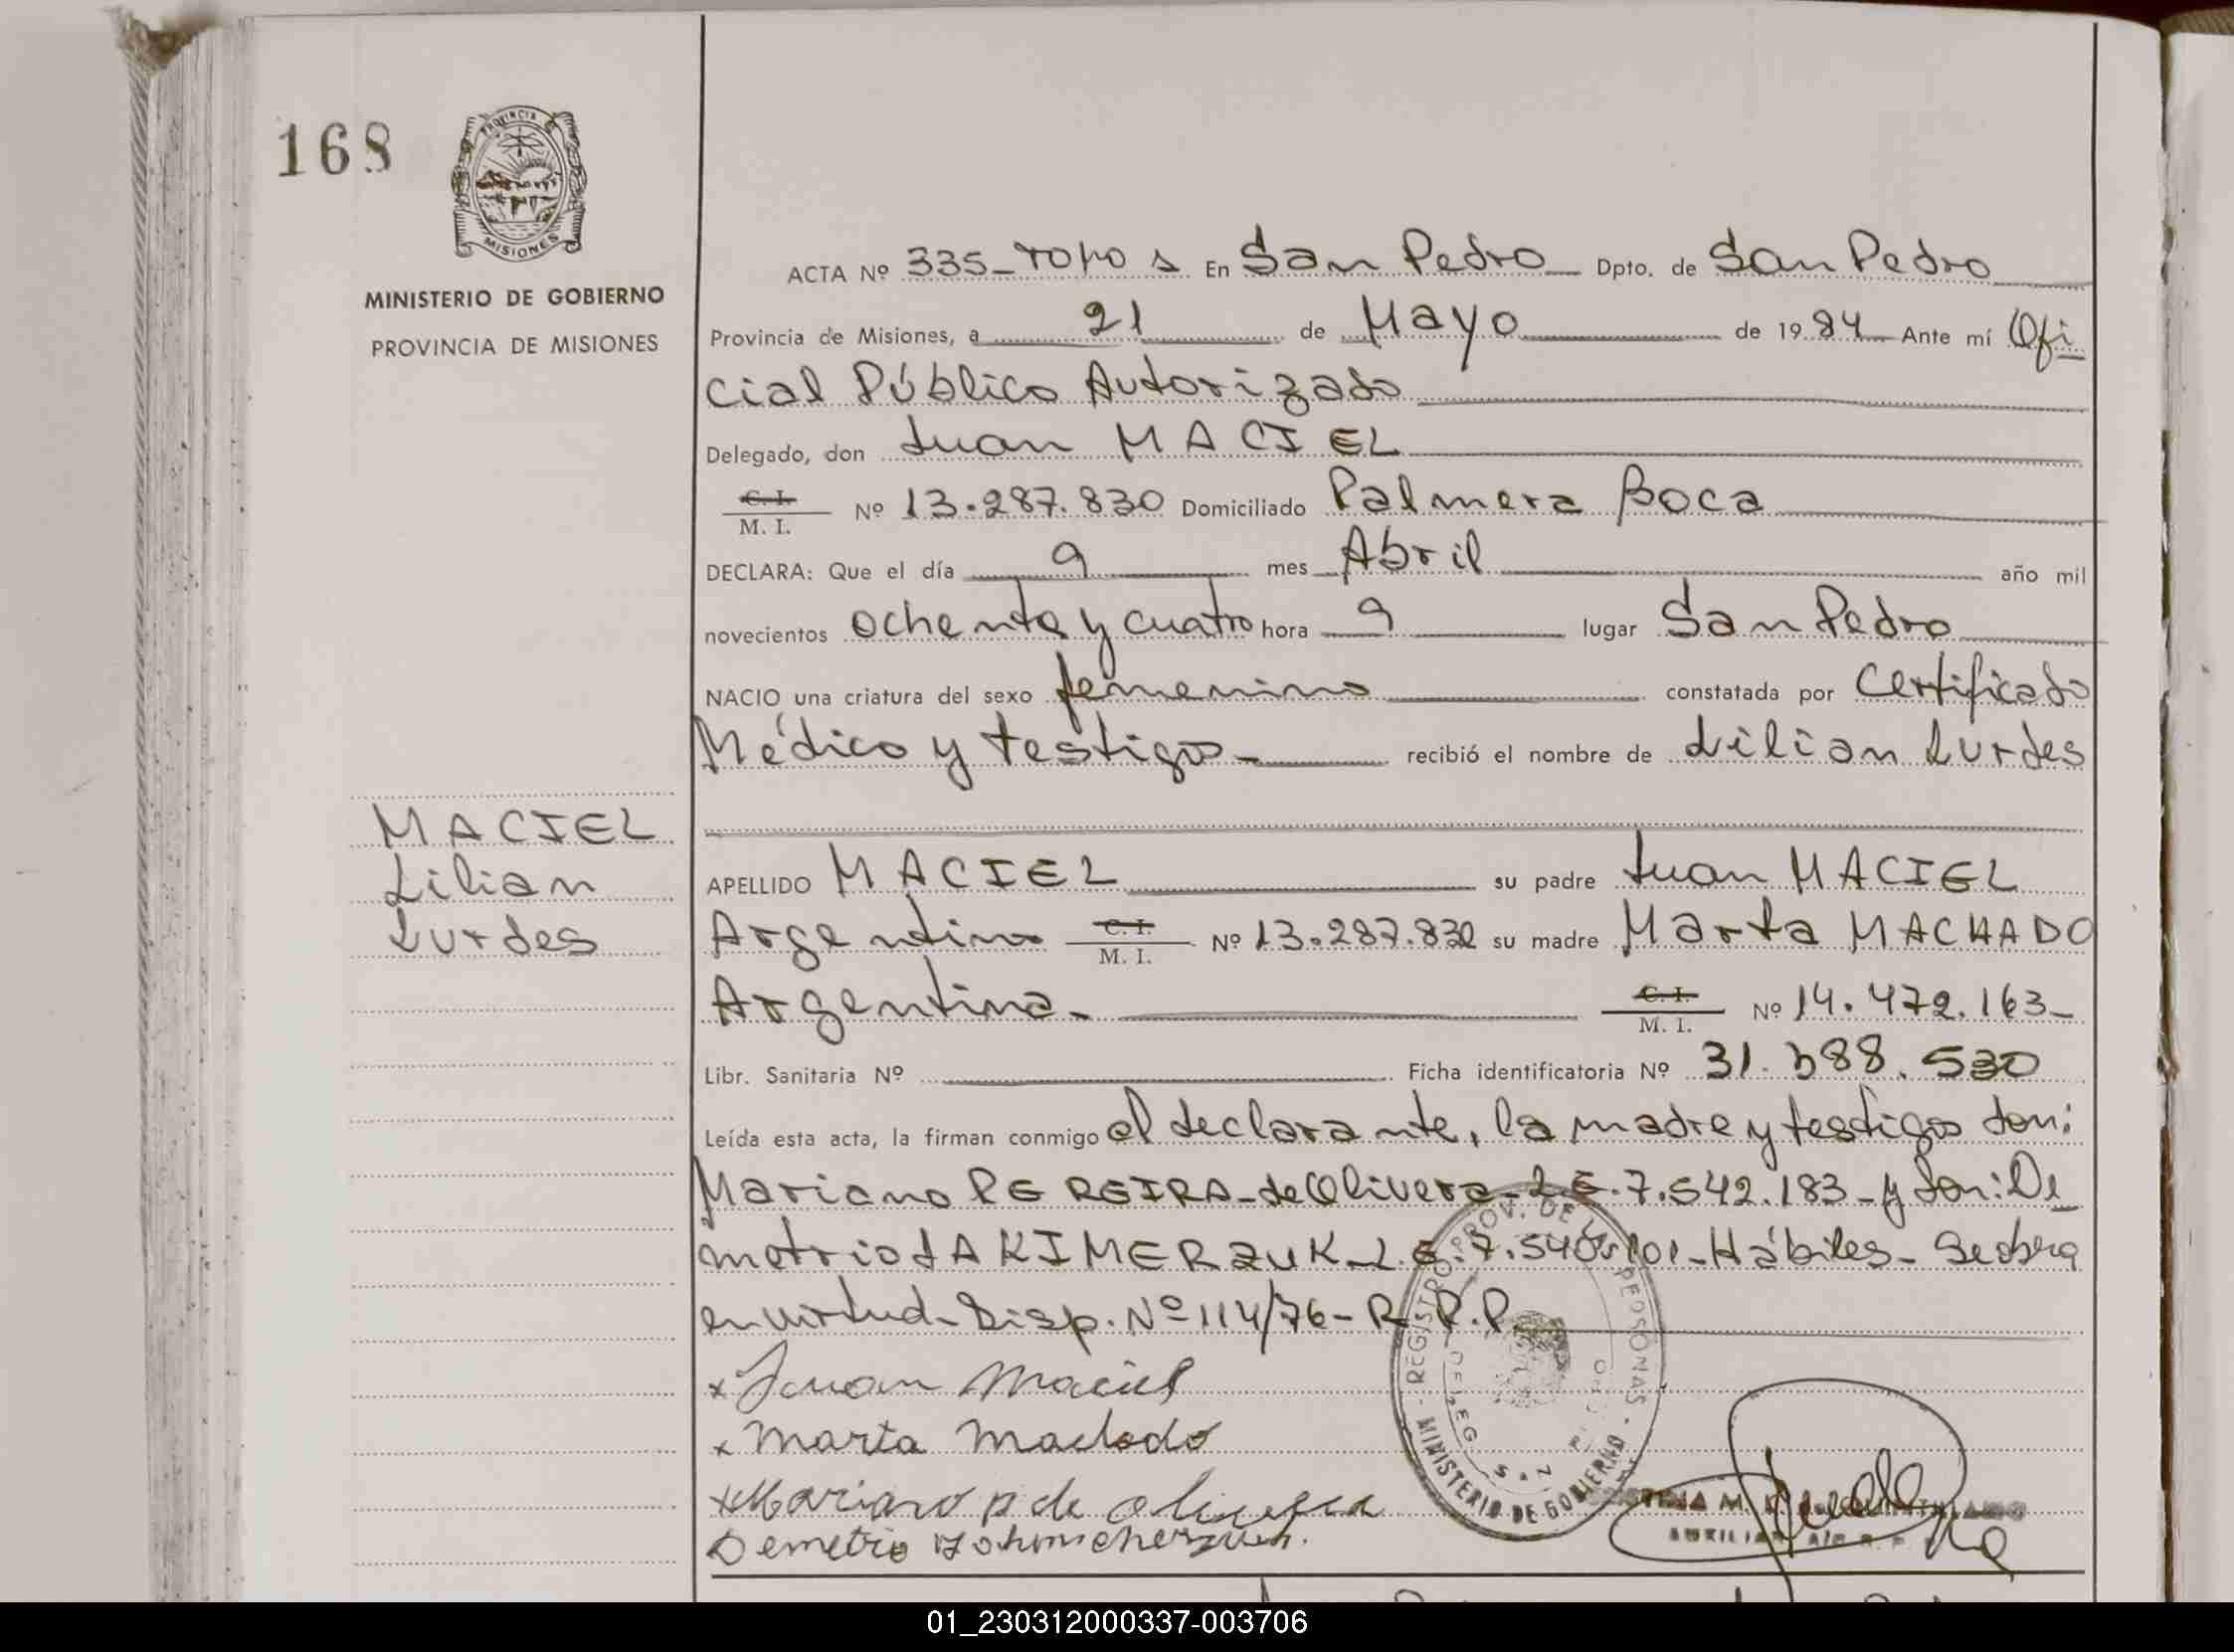 168
PROVINCIA DE
MISIONES
MINISTERIO DE GOBIERNO
PROVINCIA DE MISIONES
ACTA Nº 335- Tomo s En San Pedro Dpto. de San Pedro
Provincia de Misiones, a 21 de Mayo de 1984 Ante mí Ofi
cial Público Autorizado
Delegado, don Juan MACIEL
C. I. M. I. Nº 13.287.830 Domiciliado Palmera Boca
DECLARA: Que el día 9 mes Abril año mil
novecientos ochenta y cuatro hora 9 lugar San Pedro
NACIO una criatura del sexo femenino constatada por Certificado
Médico y testigos- recibió el nombre de Lilian Lurdes
MACIEL
Lilian
Lurdes
APELLIDO MACIEL su padre Juan MACIEL
Argentino C. I. M. I. Nº 13.287.830 su madre Marta MACHADO
Argentina- C. I. M. I. Nº 14.472.163-
Libr. Sanitaria Nº Ficha identificatoria Nº 31. 588. 530
Leída esta acta, la firman conmigo el declarante, la madre y testigos don:
Mariano PEREIRA-de Olivera-LE.7.542.183-y don: De_
metrio JAKIMERZUK-L.E.7.540.101-Hábiles-
en virtud-Disp.Nº114/76-R.P.P.
x Juan Maciel
x Marta Machado
x Mariano p de olivera
Demetrio
REGISTRO PROV. DE LAS PERSONAS - MINISTERIO DE GOBIERNO
AUXILIAR
01_230312000337-003706